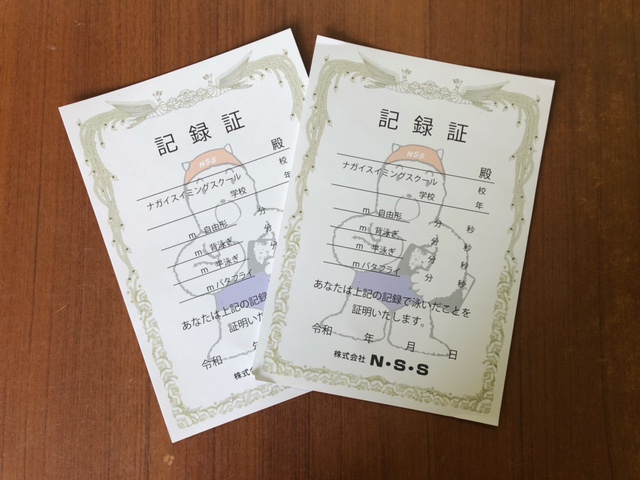 記録証
殿
NSS
ナガイスイミングスクール
校
学校
年
m 自由形 分
m 背泳ぎ 分
m 平泳ぎ 分
m バタフライ 分
あなたは上記の記録
証明いた
令和 年
株式会
記録証
殿
NSS
ナガイスイミングスクール 校
学校 年
m 自由形 分 秒
m 背泳ぎ 分 秒
m 平泳ぎ 分 秒
m バタフライ 分 秒
あなたは上記の記録で泳いだことを
証明いたします。
令和 年 月 日
株式会社 N・S・S